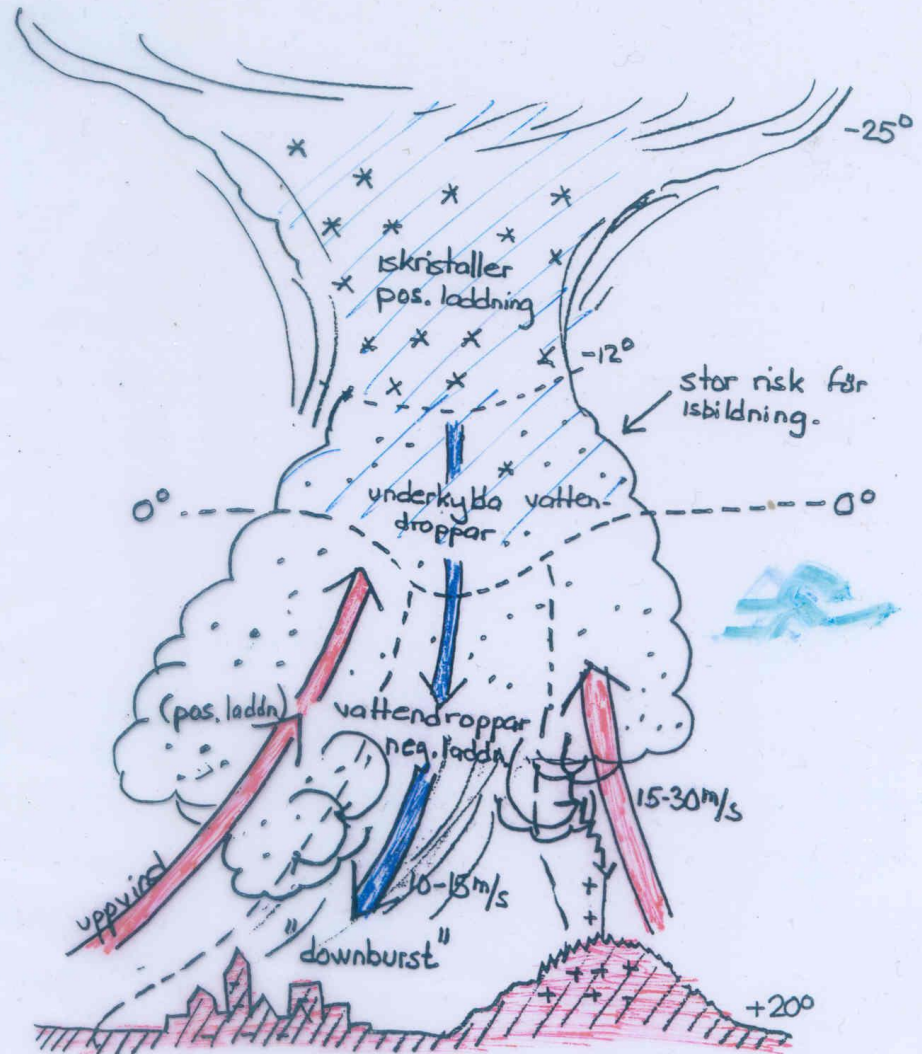 -25°
iskristaller
pos. laddning
-12°
stor risk för
isbildning.
0°
underkylda vatten-
droppar
0°
(pos. laddn)
vattendroppar
neg. laddn
15-30 m/s
uppvind
10-15 m/s
"downburst"
+20°